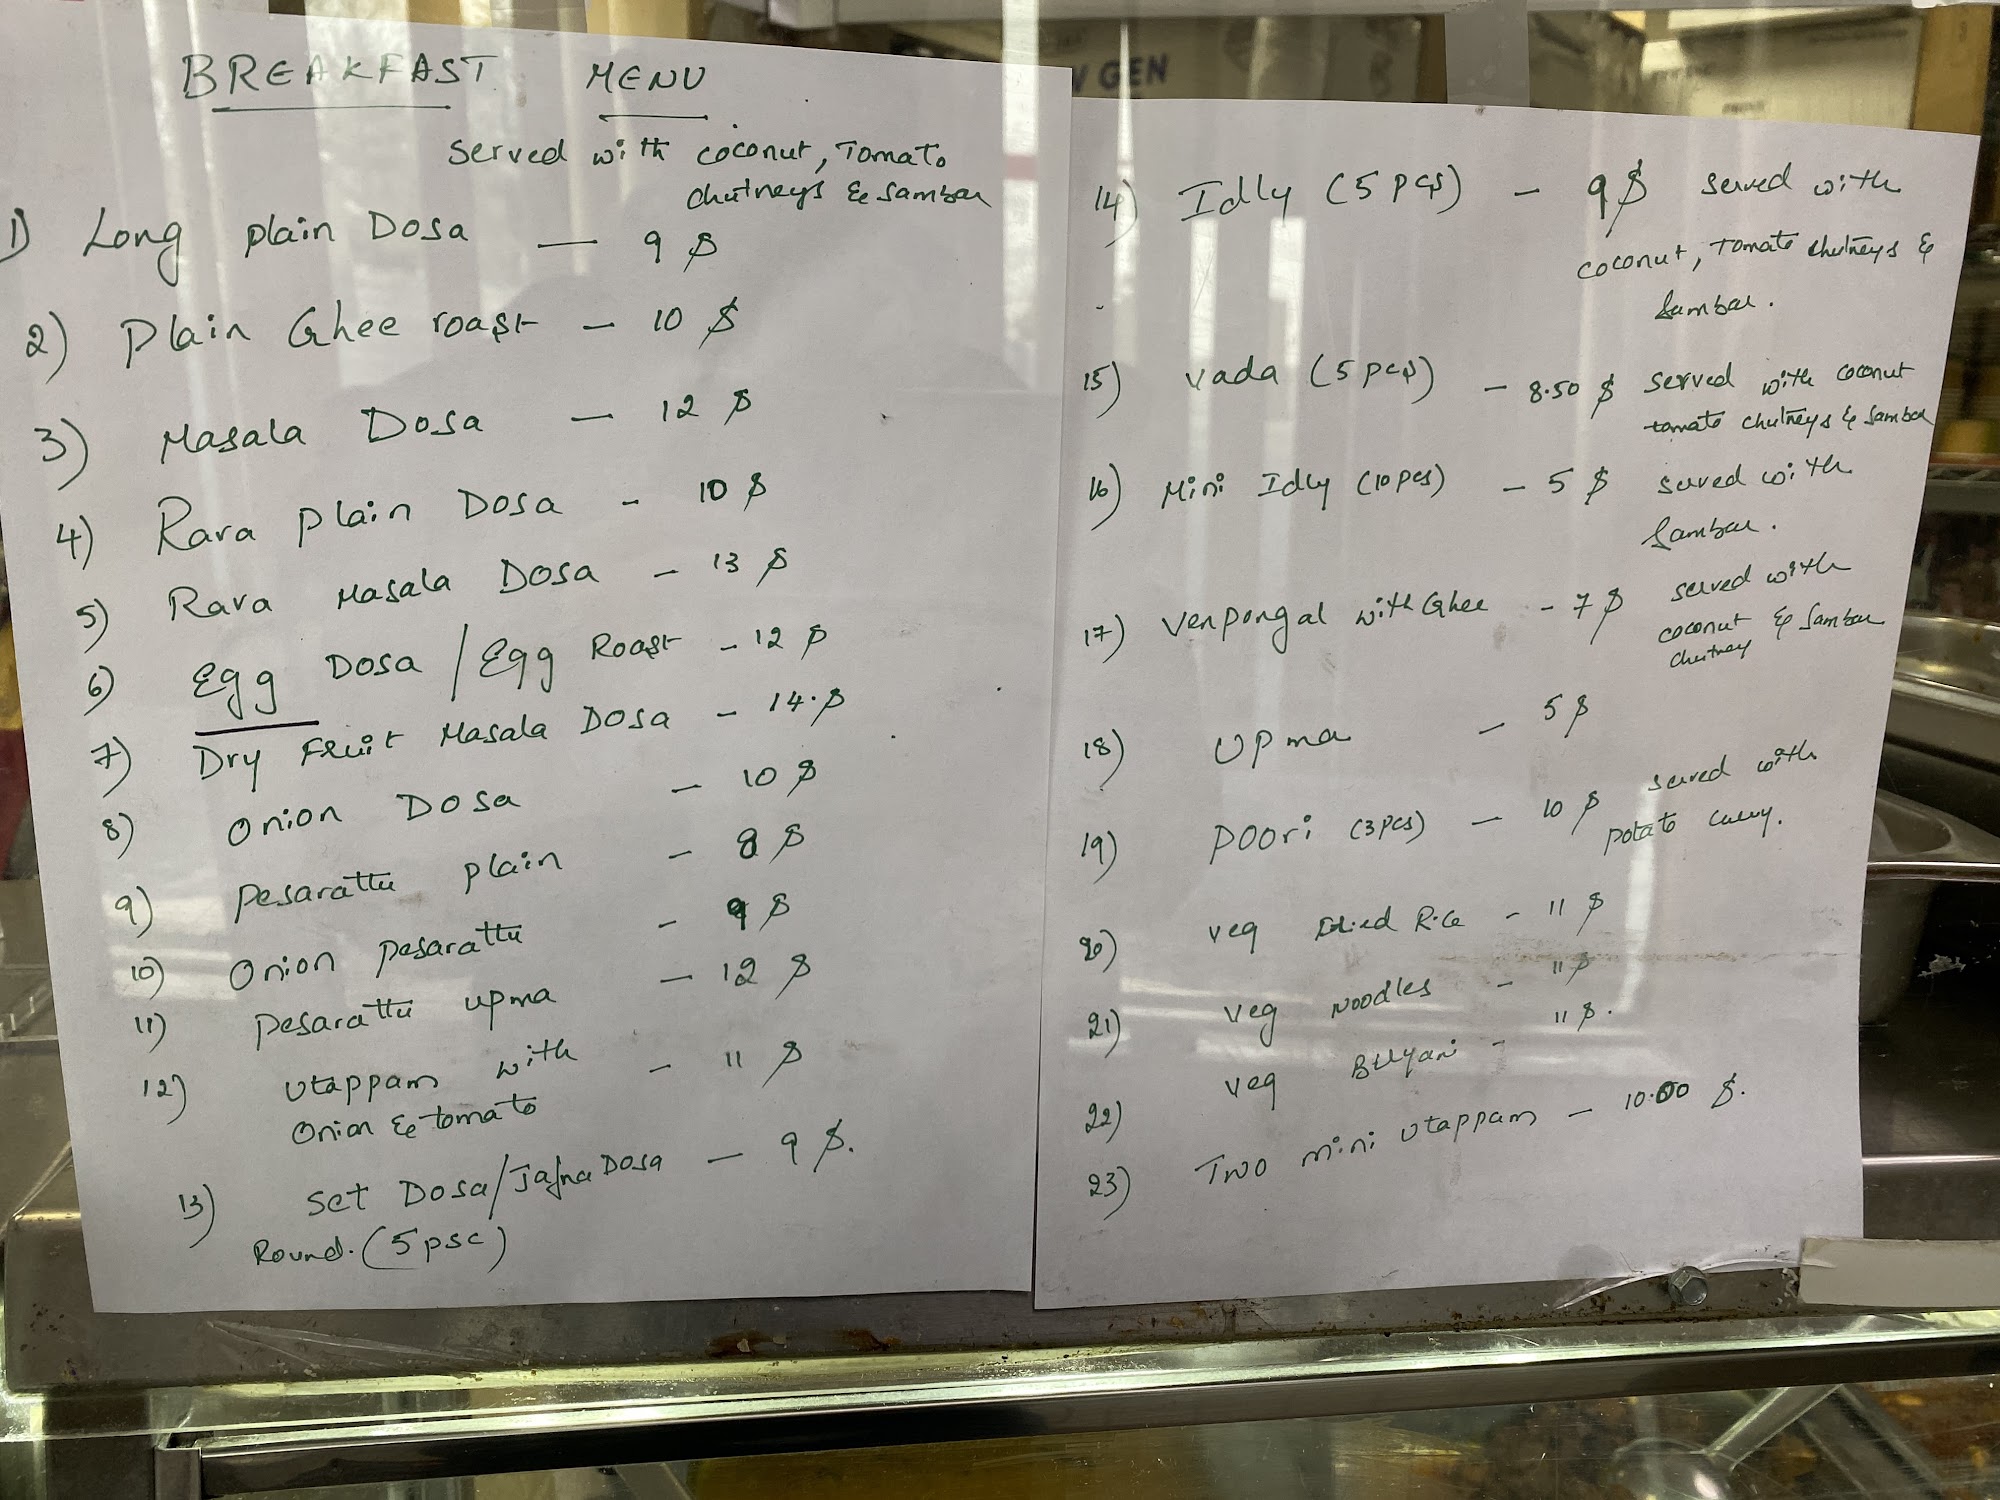 BREAKFAST MENU
Served with coconut, Tomato
chutneys & Sambar
1) Long plain Dosa — 9 $
2) Plain Ghee roast — 10 $
3) Masala Dosa — 12 $
4) Rava plain Dosa - 10 $
5) Rava Masala Dosa - 13 $
6) Egg Dosa / Egg Roast - 12 $
7) Dry Fruit Masala Dosa - 14.$
8) Onion Dosa - 10 $
9) Pesarattu plain - 8 $
10) Onion Pesarattu - 9 $
11) Pesarattu upma - 12 $
12) Utappam with - 11 $
Onion & tomato
13) Set Dosa/Jafna Dosa — 9 $.
Round. (5 psc)
14) Idly (5 pcs) - 9 $ served with
coconut, Tomato chutneys &
Sambar.
15) Vada (5 pcs) - 8.50 $ served with coconut
tomato chutneys & Sambar
16) Mini Idly (10 pcs) - 5 $ served with
Sambar.
17) Venpongal with Ghee - 7 $ served with
coconut & Sambar
chutney
18) Upma - 5 $
19) Poori (3 pcs) - 10 $ served with
potato curry.
20) Veg Fried Rice - 11 $
21) Veg Noodles - 11 $
22) Veg Biryani - 11 $.
23) Two mini utappam - 10.00 $.
GEN